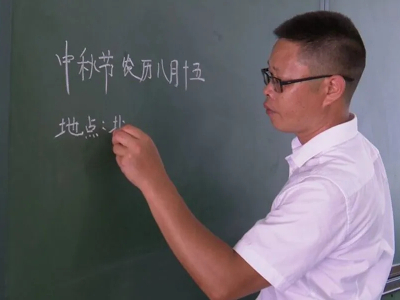 中秋节 农历八月十五
地点: